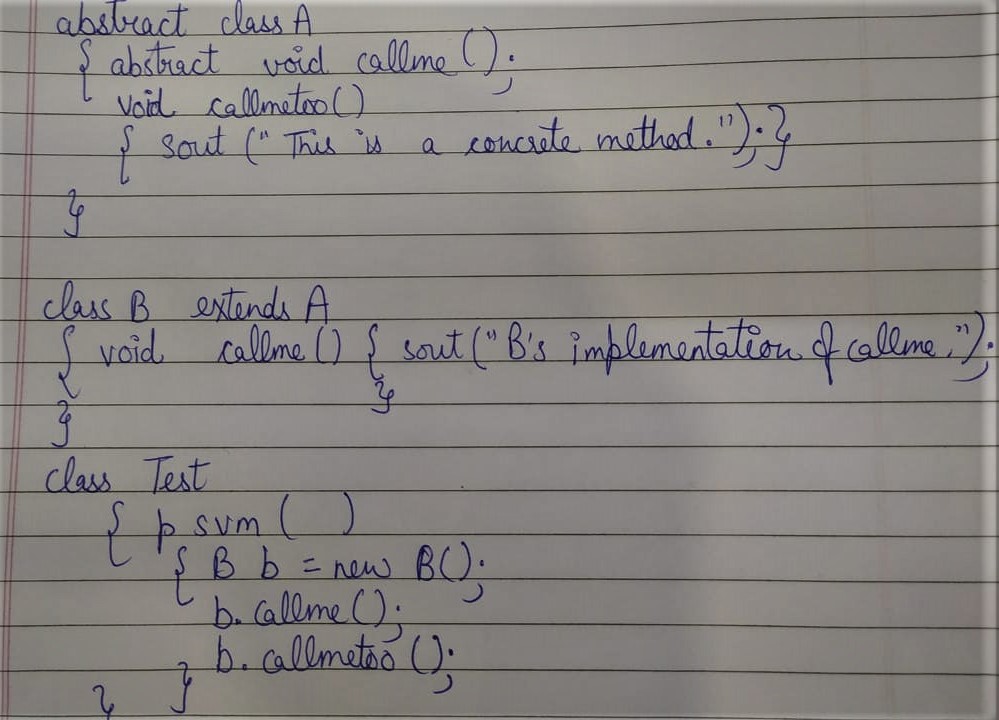 abstract class A
{ abstract void callme();
void callmetoo()
{ sout ("This is a concrete method."); }
}
class B extends A
{ void callme() { sout("B's implementation of callme.");
}
}
class Test
{ p svm ( )
{ B b = new B();
b. callme();
b. callmetoo();
} }